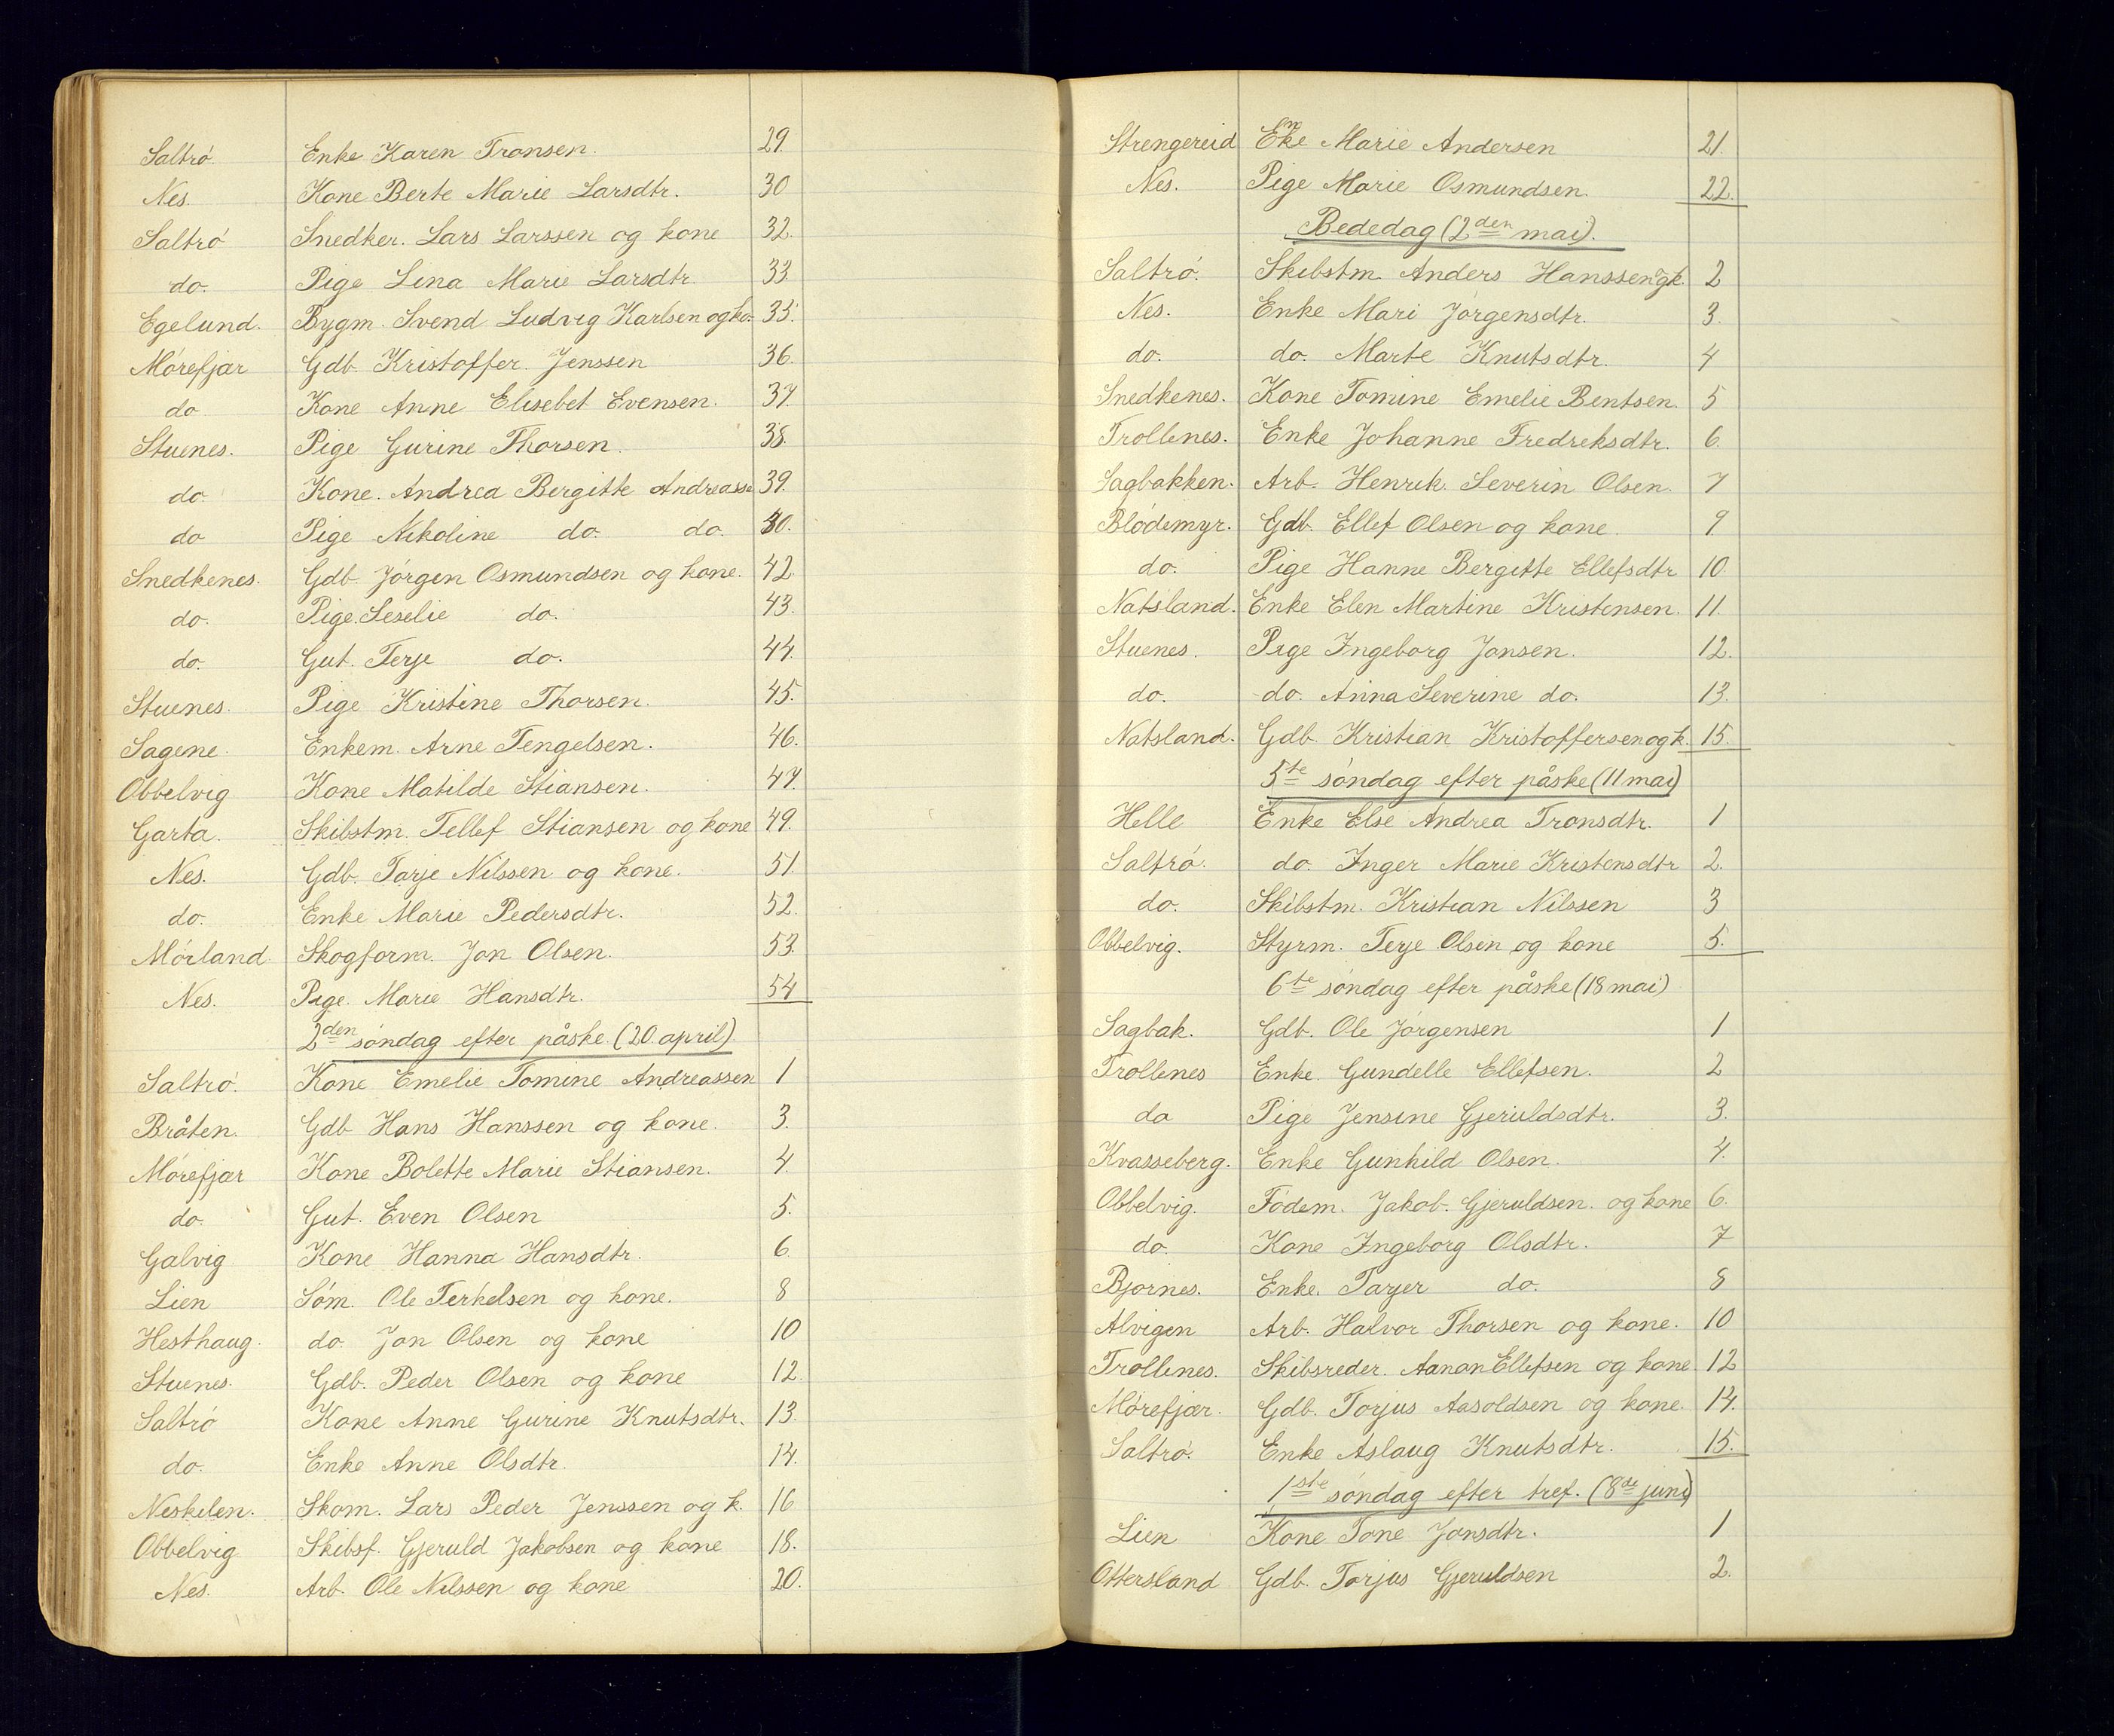 Saltró Enke Karen Tronsen. 29.
Nes. Kone Berte Marie Larsdtr. 30
Saltró Snedker. Lars Larssen og kone 32.
do. Pige Lina Marie Larsdtr. 33.
Egelund. Bygm. Svend Ludvig Karlsen og ko. 35.
Mórefjær Gdb. Kristoffer Jenssen 36.
do Kone Anne Elisebet Evensen. 37.
Stuenes. Pige Gurine Thorsen. 38.
do. Kone. Andrea Bergitte Andreasse 39.
do Pige Nikoline do. do. 40.
Snedkenes. Gdb. Jórgen Osmundsen og kone. 42.
do. Pige. Seselie do. 43.
do. Gut. Terje do. 44.
Stuenes. Pige Kristine Thorsen. 45.
Sagene. Enkem. Arne Tengelsen. 46.
Obbelvig Kone Matilde Stiansen. 47.
Garta. Skibstm. Tellef Stiansen og kone 49.
Nes. Gdb. Tarje Nilssen og kone. 51.
do. Enke Marie Pedersdtr. 52.
Mórland. Skogform. Jon Olsen. 53.
Nes. Pige. Marie Hansdtr. 54
2den sóndag efter påske. (20. april)
Saltró. Kone Emelie Tomine Andreassen 1
Bråten. Gdb Hans Hanssen og kone. 3.
Mórefjær Kone Bolette Marie Stiansen. 4.
do. Gut. Even Olsen 5.
Galvig Kone Hanna Hansdtr. 6
Lien Sóm. Ole Terkelsen og kone. 8
Hesthaug. do. Jon Olsen og kone 10
Stuenes. Gdb. Peder Olsen og kone 12.
Saltró Kone Anne Gurine Knutsdtr. 13.
do. Enke Anne Olsdtr. 14.
Neskilen. Skom. Lars Peder Jenssen og k. 16
Obbelvig Skibsf. Gjeruld Jakobsen og kone 18.
Nes. Arb. Ole Nilssen og kone 20.
Strengereid Enke Marie Andersen 21.
Nes. Pige Marie Osmundsen. 22.
Bededag (2den mai).
Saltró. Skibstm. Anders Hanssen og k. 2
Nes. Enke Mari Jórgensdtr. 3.
do. do. Marte Knutsdtr. 4
Snedkenes. Kone Tomine Emelie Bentsen. 5
Trollenes. Enke Johanne Fredreksdtr. 6.
Sagbakken. Arb. Henrik Severin Olsen. 7
Blódemyr. Gdb. Ellef Olsen og kone. 9.
do. Pige Hanne Bergitte Ellefsdtr 10.
Natsland. Enke Elen Martine Kristensen. 11.
Stuenes. Pige Ingeborg Jonsen. 12.
do. do. Anna Severine do. 13.
Natsland. Gdb. Kristian Kristoffersen og k. 15.
5te sóndag efter påske (11 mai)
Helle Enke Else Andrea Tronsdtr. 1
Saltró. do. Inger Marie Kristensdtr 2.
do. Skibstm. Kristian Nilssen 3
Obbelvig. Styrm. Terje Olsen og kone 5.
6te sóndag efter påske (18 mai)
Sagbak. Gdb. Ole Jórgensen 1
Trollenes Enke. Gundelle Ellefsen. 2
do Pige Jensine Gjeruldsdtr. 3.
Kvasseberg. Enke Gunhild Olsen. 4.
Obbelvig. Fódem. Jakob. Gjeruldsen. og kone 6.
do. Kone Ingeborg Olsdtr. 7
Bjornes. Enke. Tarjer do. 8
Alvigen Arb. Halvor Thorsen og kone. 10
Trollenes. Skibsreder. Aanon Ellefsen og kone 12
Mórefjær. Gdb. Torjus Aasoldsen og kone. 14.
Saltró. Enke Aslaug Knutsdtr. 15.
1ste sóndag efter tref. (8de juni)
Lien Kone Tone Jonsdtr. 1
Ottersland Gdb. Torjus Gjeruldsen 2.